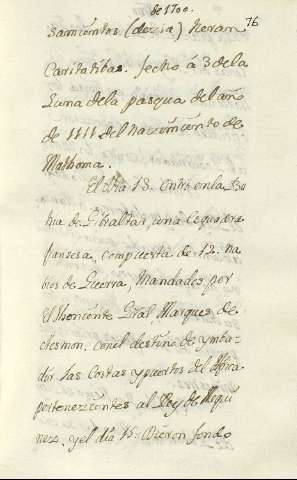 de 1700.
76
samientos (dezia) heran
Caritatibas. fecho á 3 de la
Luna de la pasqua del año
de 1111 del nazimiento de
Mathoma.
El dia 13. entró en la Ba
hia de Gibraltar, una esquadra
fransesa, compuesta de 12. na
bios de Guerra, Mandados por
El theniente Gral Marques de
con el destino de ymba-
dir las Costas y puertos del Africa
pertenezientes al Rey de Mequi
nez. y el dia 15. Dieron fondo